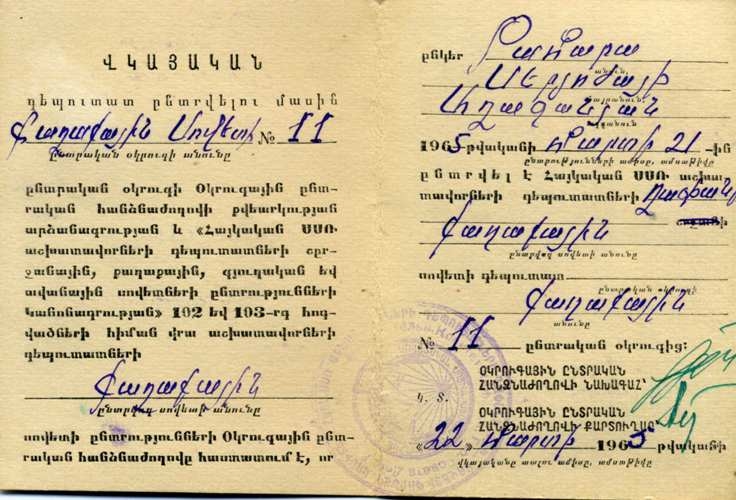 ՎԿԱՅԱԿԱՆ
դեպուտատ ընտրվելու մասին
Քաղաքային Սովետի № 11
ընտրական օկրուգի անունը
ընտրական օկրուգի Օկրուգային ընտ-
րական հանձնաժողովի քվեարկության
արձանագրության և «Հայկական ՍՍՌ
աշխատավորների դեպուտատների շրջ-
ջանային, քաղաքային, գյուղական եվ
ավանային սովետների ընտրությունների
Կանոնադրության» 102 եվ 103-րդ հոդ-
վածների հիման վրա աշխատավորների
դեպուտատների
քաղաքային
ընտրվող սովետի անունը
սովետի ընտրությունների Օկրուգային ընտ-
րական հանձնաժողովը հաստատում է, որ
ընկեր Թամարա
անուն,
Սերյոժայի
հայրանուն,
Աղաջանյան
ազգանուն
1965 թվականի մարտի 21-ին
ընտրությունների ամիսը, ամսաթիվը
ընտրվել է Հայկական ՍՍՌ աշխա-
տավորների դեպուտատների Ղափանի
քաղաքային
ընտրվող սովետի անունը
սովետի դեպուտատ
ընտրական օկրուգի
քաղաքային
անունը
№ 11 ընտրական օկրուգից:
ՕԿՐՈՒԳԱՅԻՆ ԸՆՏՐԱԿԱՆ
ՀԱՆՁՆԱԺՈՂՈՎԻ ՆԱԽԱԳԱՀ՝
Կ. Տ.
ՕԿՐՈՒԳԱՅԻՆ ԸՆՏՐԱԿԱՆ
ՀԱՆՁՆԱԺՈՂՈՎԻ ՔԱՐՏՈՒՂԱՐ՝
«22» մարտի 1965 թվականի
վկայականը տալու ամիսը, ամսաթիվը